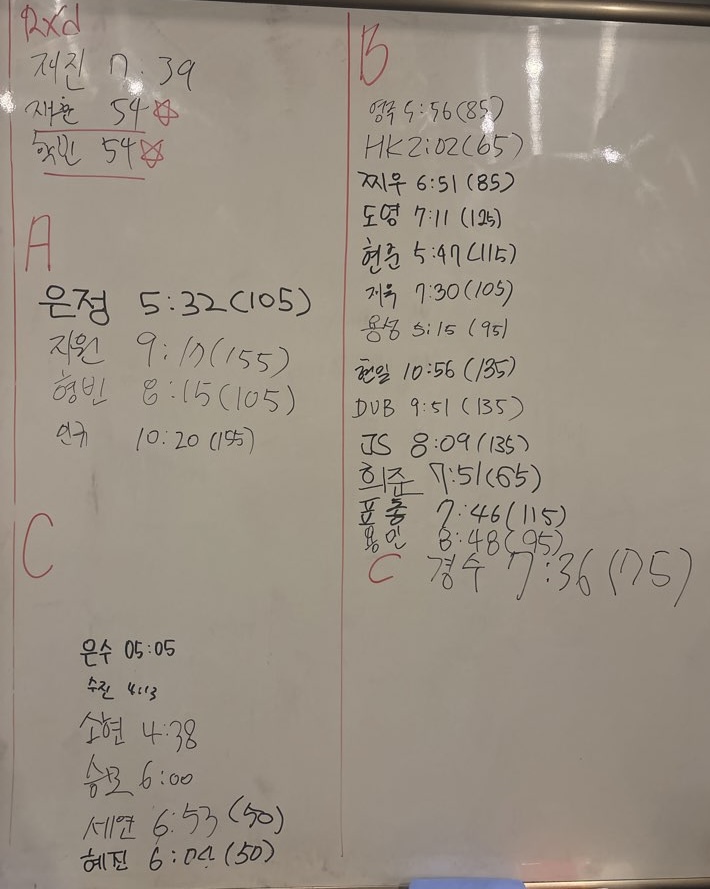 Rxd
재진 7.39
재환 54
학빈 54
A
은정 5:32(105)
지원 9:17(155)
형빈 8:15(105)
인규 10:20(155)
C
은수 05:05
수진 4:13
소현 4:38
승모 6:00
세연 6:53(50)
혜진 6:04(50)
B
영주 5:56(85)
HK 2:02(65)
찌우 6:51(85)
도영 7:11(125)
현준 5:47(115)
지욱 7:30(105)
용성 5:15(95)
현일 10:56(135)
DUB 9:51(135)
JS 8:09(135)
희준 7:51(65)
표종 7:46(115)
용인 8:48(95)
C 경수 7:36(75)